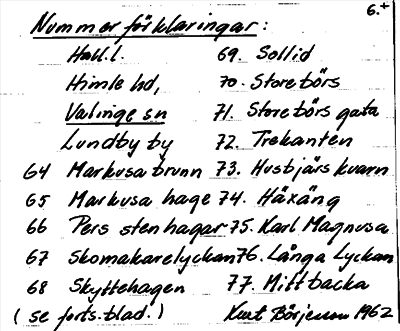 6.+
Nummer förklaringar:
Hall.l. 69. Sollid
Himle hd, 70. Storebörs
Valinge sn 71. Storebörs gata
Lundby by 72. Trekanten
64 Markusa brunn 73. Husbjärs kvarn
65 Markusa hage 74. Häxäng
66 Pers stenhagar 75. Karl Magnusa
67 Skomakarelyckan 76. Långa Lyckan
68 Skyttehagen 77. Mittbacka
(se forts. blad.) Kurt Börjesson 1962